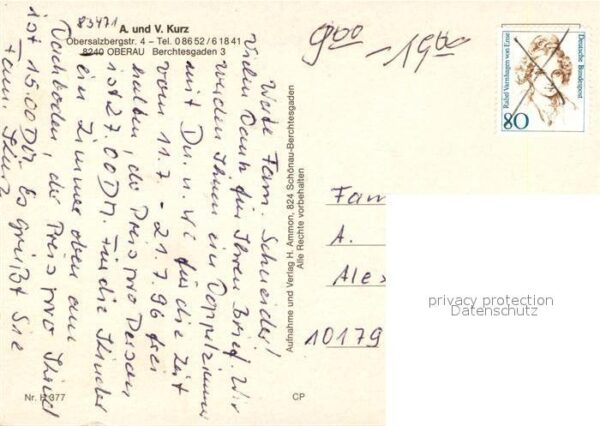 83471
A. und V. Kurz
Obersalzbergstr. 4 – Tel. 0 86 52 / 6 18 41
8240 OBERAU Berchtesgaden 3
900 - 1900
Deutsche Bundespost
Rahel Varnhagen von Ense
80
Werte Fam. Schneider!
Vielen Dank für Ihren Brief. Wir
werden Ihnen ein Doppelzimmer
mit Du. u. Wc für die Zeit
vom 11.7. - 21.7.96 frei
halten, der Preis pro Person
ist 27.00 DM. Für die Kinder
ein Zimmer oben am
Dachboden, der Preis pro Kind
ist 15.00 DM. Es grüßt Sie
Fam. Kurz
Aufnahme und Verlag H. Ammon, 824 Schönau-Berchtesgaden
Alle Rechte vorbehalten
Fam
A.
Alex
10179
privacy protection
Datenschutz
Nr. H 377
CP